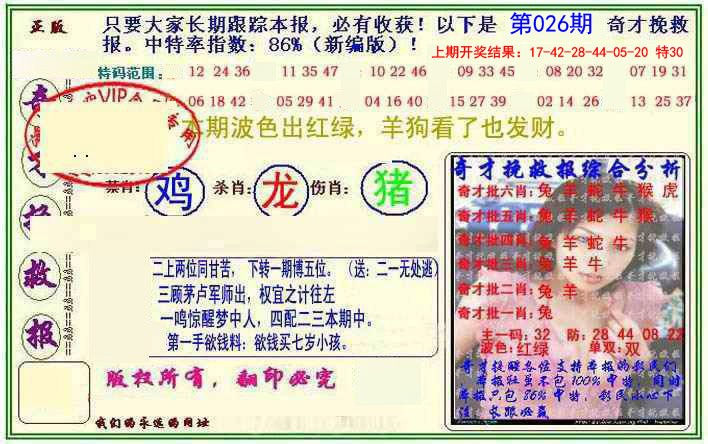 正版
只要大家长期跟踪本报，必有收获！以下是 第026期 奇才挽救
报。中特率指数：86%（新编版）！
上期开奖结果：17-42-28-44-05-20 特30
特码范围：
12 24 36 11 35 47 10 22 46 09 33 45 08 20 32 07 19 31
VIP
06 18 42 05 29 41 04 16 40 15 27 39 02 14 26 13 25 37
本期波色出红绿，羊狗看了也发财。
禁肖：鸡 杀肖：龙 伤肖：猪
救
报
二上两位同甘苦，下转一期博五位。（送：二一无处逃）
三顾茅卢军师出，权宜之计往左
一鸣惊醒梦中人，四配二三本期中。
第一手欲钱料：欲钱买七岁小孩。
版权所有，翻印必究
我们的永远的网址
奇才挽救报综合分析
奇才批六肖：兔 羊 蛇 牛 猴 虎
奇才批五肖：兔 羊 蛇 牛 猴
奇才批四肖：兔 羊 蛇 牛
奇才批三肖：兔 羊 牛
奇才批二肖：兔 羊
奇才批一肖：兔
主一码：32 防：28 44 08 22
波色：红绿 单双：双
奇才提醒各位支持本报的彩民们
本报社虽不包100%中特，但时
本报只包86%中特，彩民小心下
注，长跟必赢